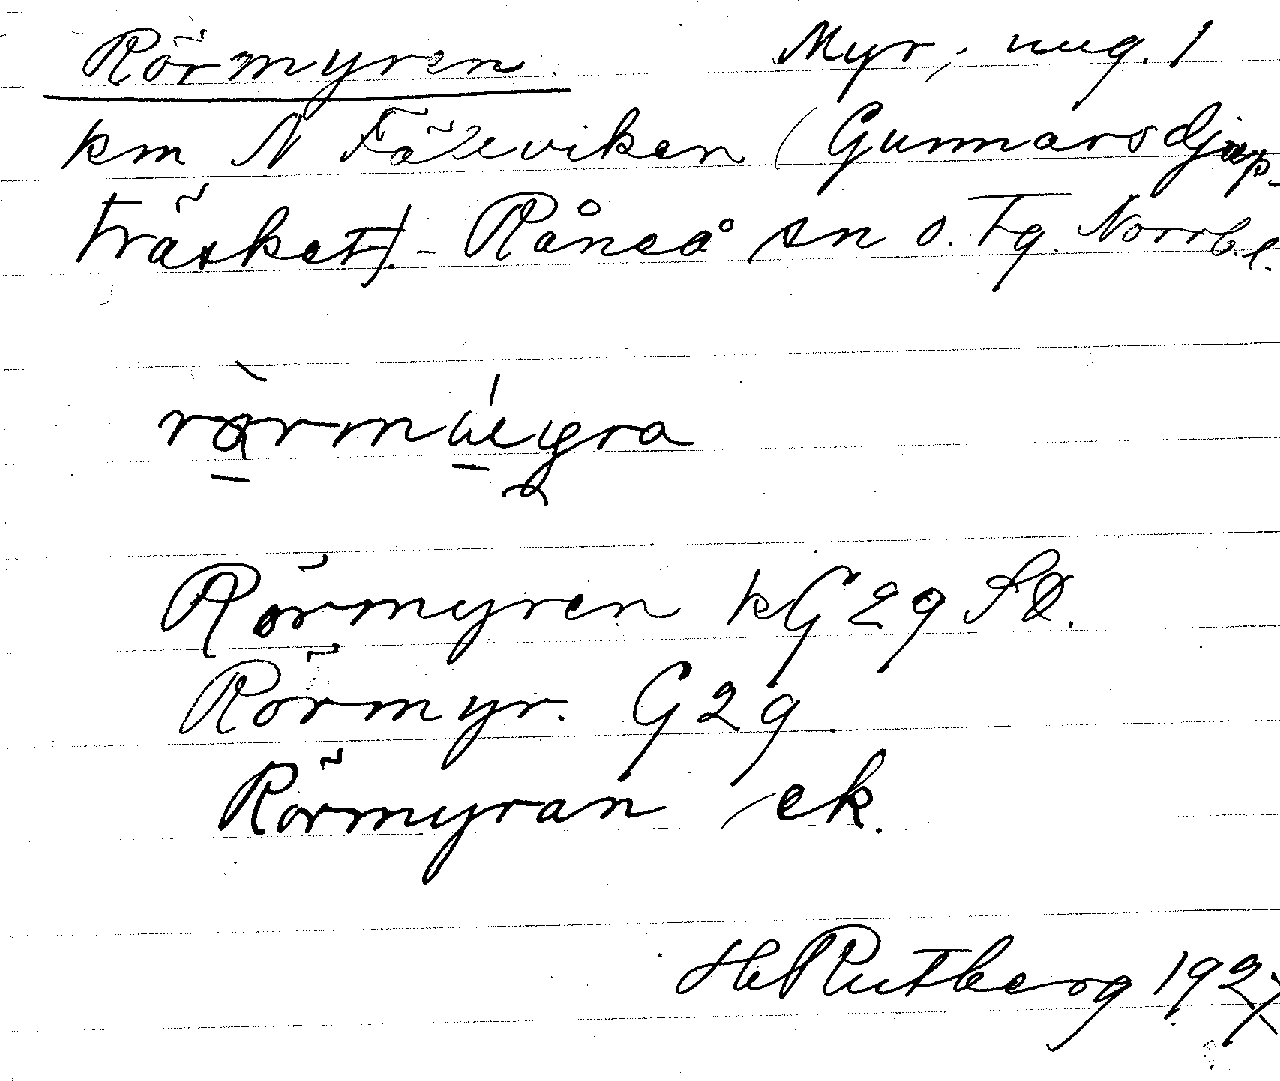 Rörmyren. Myr, ung. 1
km N Fäleviken (Gunnarsdjup-
träsket). - Råneå sn o. Tg. Norrb.l.
Rörmyren kG 29 Sä.
Rörmyr. G 29
Rörmyran ek.
H Rutberg 1927